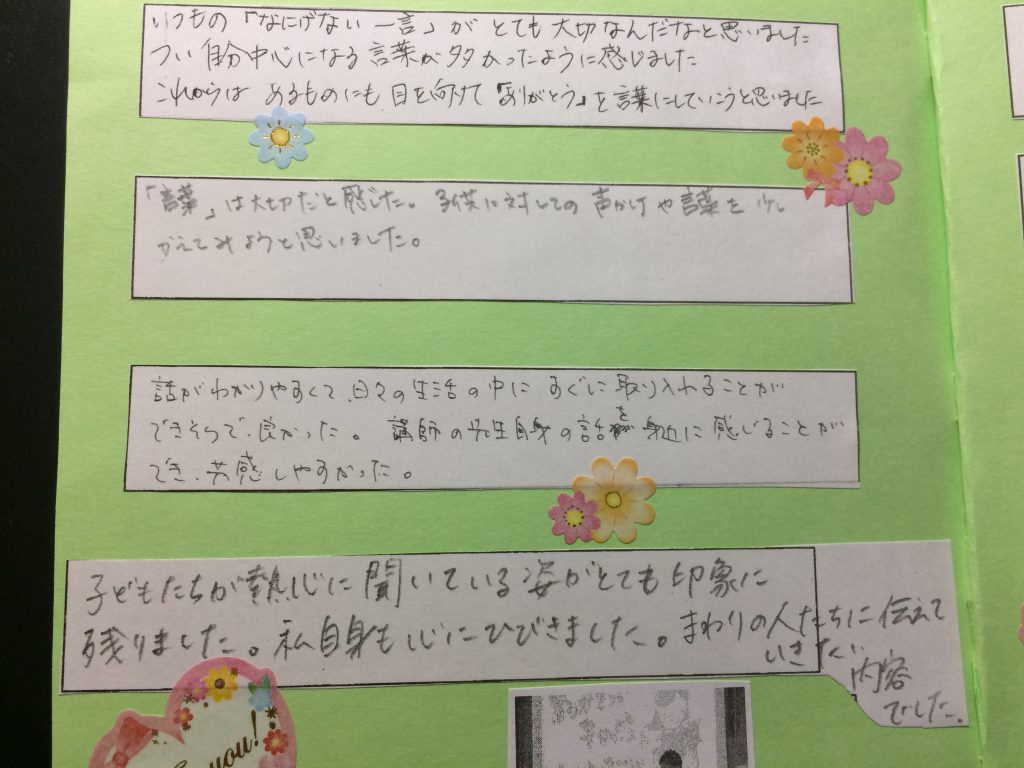 いつもの「なにげない一言」がとても大切なんだなと思いました
つい自分中心になる言葉が多かったように感じました
これからは あるものにも目を向けて「ありがとう」を言葉にしていこうと思いました
「言葉」は大切だと感じた。子供に対しての声かけや言葉を少し
かえてみようと思いました。
話がわかりやすくて、日々の生活の中にすぐに取り入れることが
できそうで、良かった。講師の先生自身の話を身近に感じることが
でき、共感しやすかった。
子どもたちが熱心に聞いている姿がとても印象に
残りました。私自身も心にひびきました。まわりの人たちに伝えて
いきたい
内容
でした。
you!